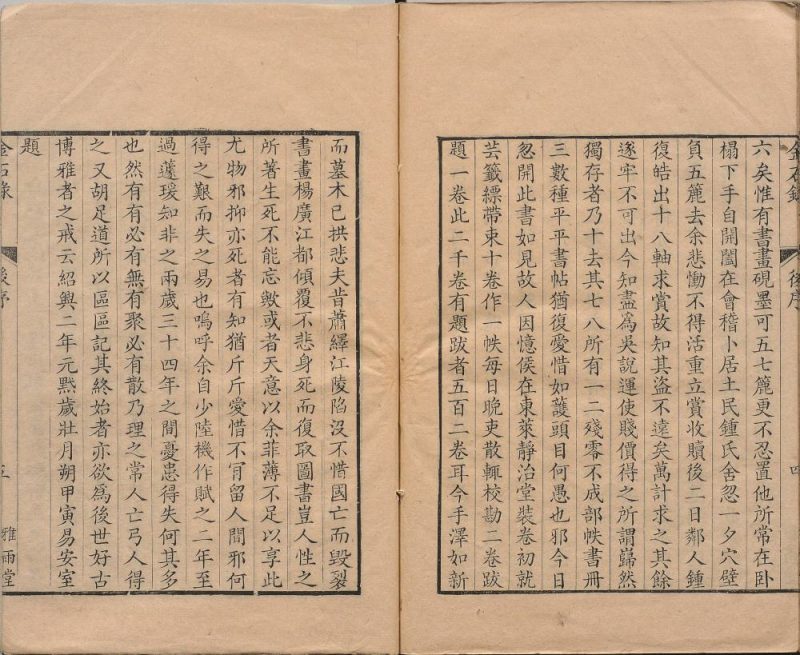 金石錄 後序 四
六矣惟有書畫硯墨可五七簏更不忍置他所常在臥
榻下手自開闔在會稽卜居土民鍾氏舍忽一夕穴壁
負五簏去余悲慟不得活重立賞收贖後二日鄰人鍾
復皓出十八軸求賞故知其盜不遠矣萬計求之其餘
遂牢不可出今知盡爲吳說運使賤價得之所謂巋然
獨存者乃十去其七八所有一二殘零不成部帙書冊
三數種平平書帖猶復愛惜如護頭目何愚也邪今日
忽開此書如見故人因憶侯在東萊靜治堂裝卷初就
芸籤縹帶束十卷作一帙每日晚吏散輒校勘二卷跋
題一卷此二千卷有題跋者五百二卷耳今手澤如新
而墓木已拱悲夫昔蕭繹江陵陷沒不惜國亡而毀裂
書畫楊廣江都傾覆不悲身死而復取圖書豈人性之
所著生死不能忘歟或者天意以余菲薄不足以享此
尤物邪抑亦死者有知猶斤斤愛惜不肎留人間邪何
得之艱而失之易也嗚呼余自少陸機作賦之二年至
過蘧瑗知非之兩歲三十四年之間憂患得失何其多
也然有有必有無有聚必有散乃理之常人亡弓人得
之又胡足道所以區區記其終始者亦欲爲後世好古
博雅者之戒云紹興二年元黓歲壯月朔甲寅易安室
題
金石錄 後序 五 雅雨堂